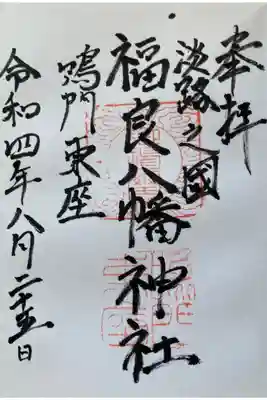 奉拝
淡路之國
福良八幡神社
鳴門東座
令和四年八月二十五日